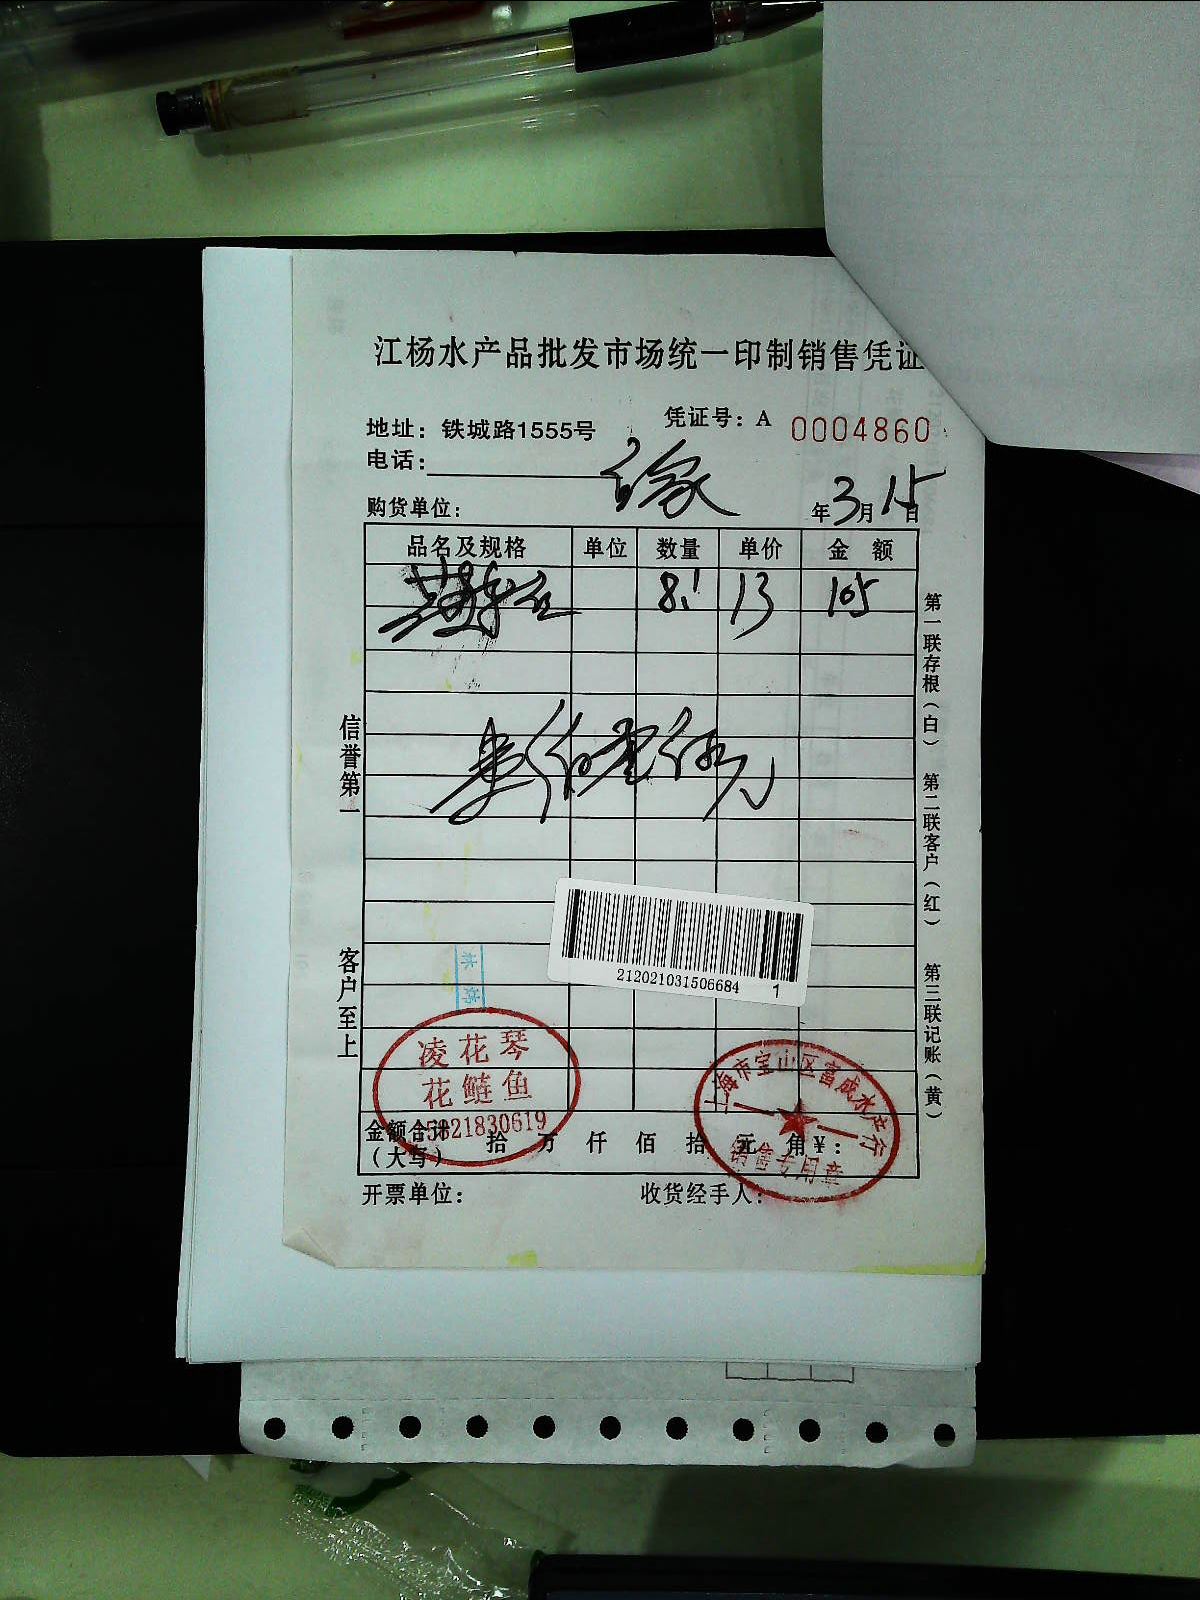 江杨水产品批发市场统一印制销售凭证
地址：铁城路1555号
凭证号：A 0004860
电话：
购货单位：
年3月15日
品名及规格 单位 数量 单价 金额
8.1 13 105
信誉第一
客户至上
第一联存根（白） 第二联客户（红） 第三联记账（黄）
212021031506684 1
凌花琴
花鲢鱼
15821830619
上海市宝山区富成水产行
销售专用章
金额合计（大写） 拾 万 仟 佰 拾 元 角 ¥：
开票单位：
收货经手人：